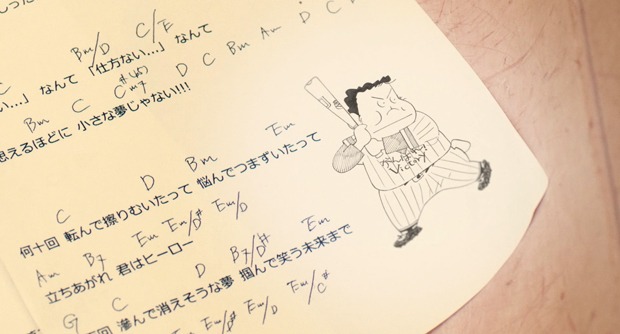 C Bm/D C/E
い…」 なんて 「仕方ない…」 なんて
Bm C C#m7 D C Bm Am D C D
思えるほどに 小さな夢じゃない!!!
C D Bm Em
何十回 転んで擦りむいたって 悩んでつまずいたって
Am B7 Em Em/D# Em/D
立ちあがれ 君はヒーロー
G C D B7/D# Em
回 滲んで消えそうな夢 掴んで笑う未来まで
Em/D# Em/D Em/C#
がんばれ
Victory